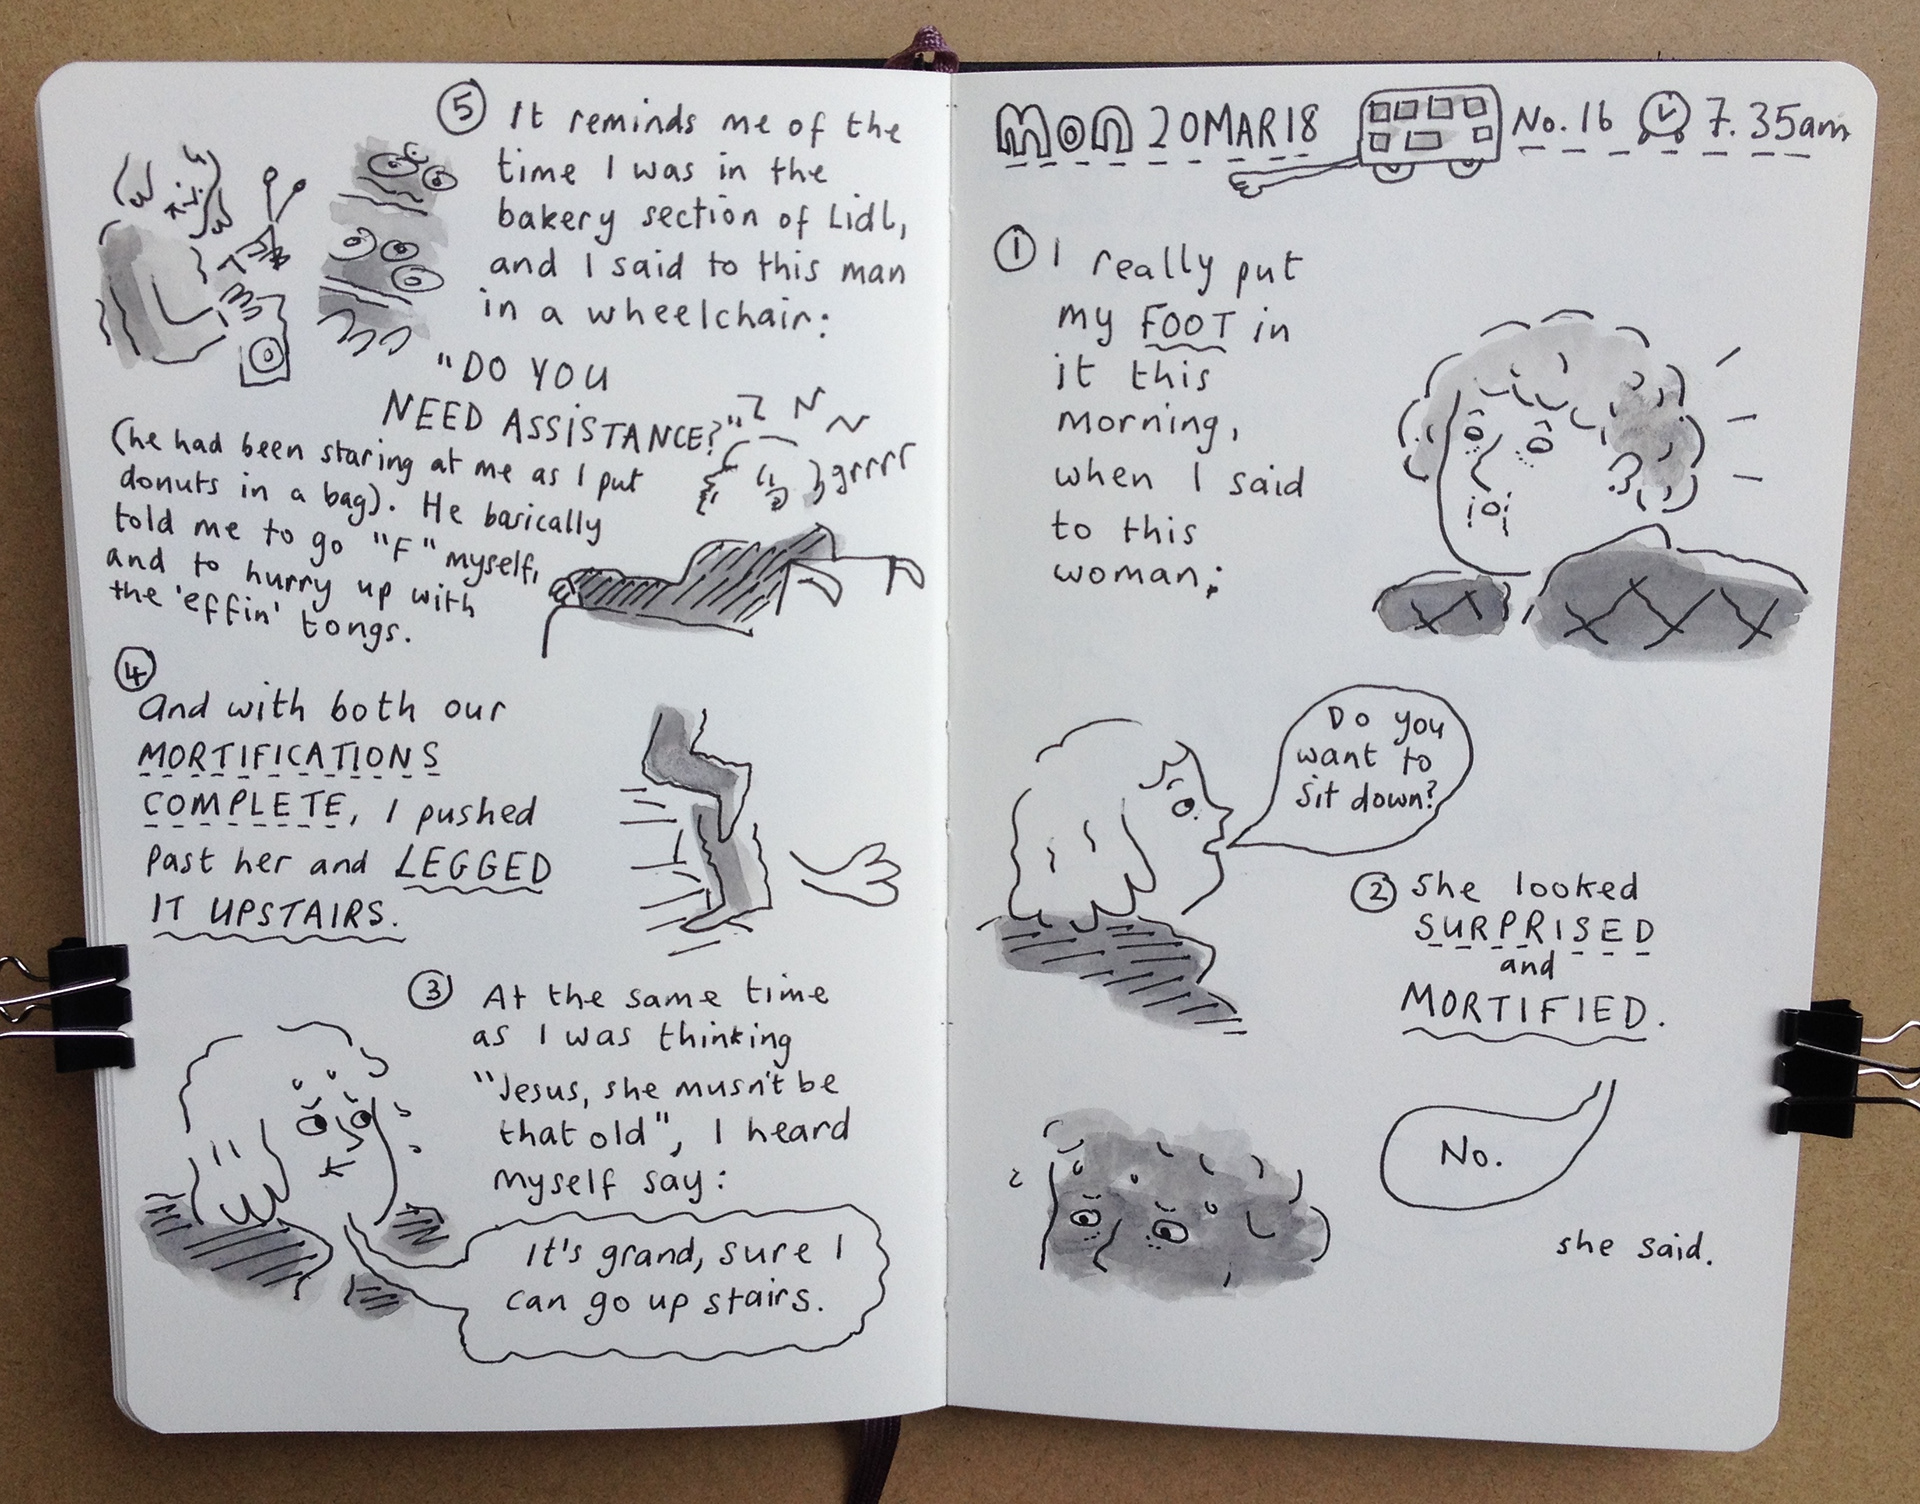 Mon 20MAR18 No. 16 7.35am
① I really put
my FOOT in
it this
morning,
when I said
to this
woman;
Do you
want to
sit down?
② She looked
SURPRISED
and
MORTIFIED.
No.
she said.
③ At the same time
as I was thinking
"Jesus, she musn't be
that old", I heard
myself say:
It's grand, sure I
can go up stairs.
④
And with both our
MORTIFICATIONS
COMPLETE, I pushed
past her and LEGGED
IT UPSTAIRS.
⑤ It reminds me of the
time I was in the
bakery section of Lidl,
and I said to this man
in a wheelchair:
"DO YOU
NEED ASSISTANCE?"
(he had been staring at me as I put
donuts in a bag). He basically
told me to go "F" myself,
and to hurry up with
the 'effin' tongs.
grrrr